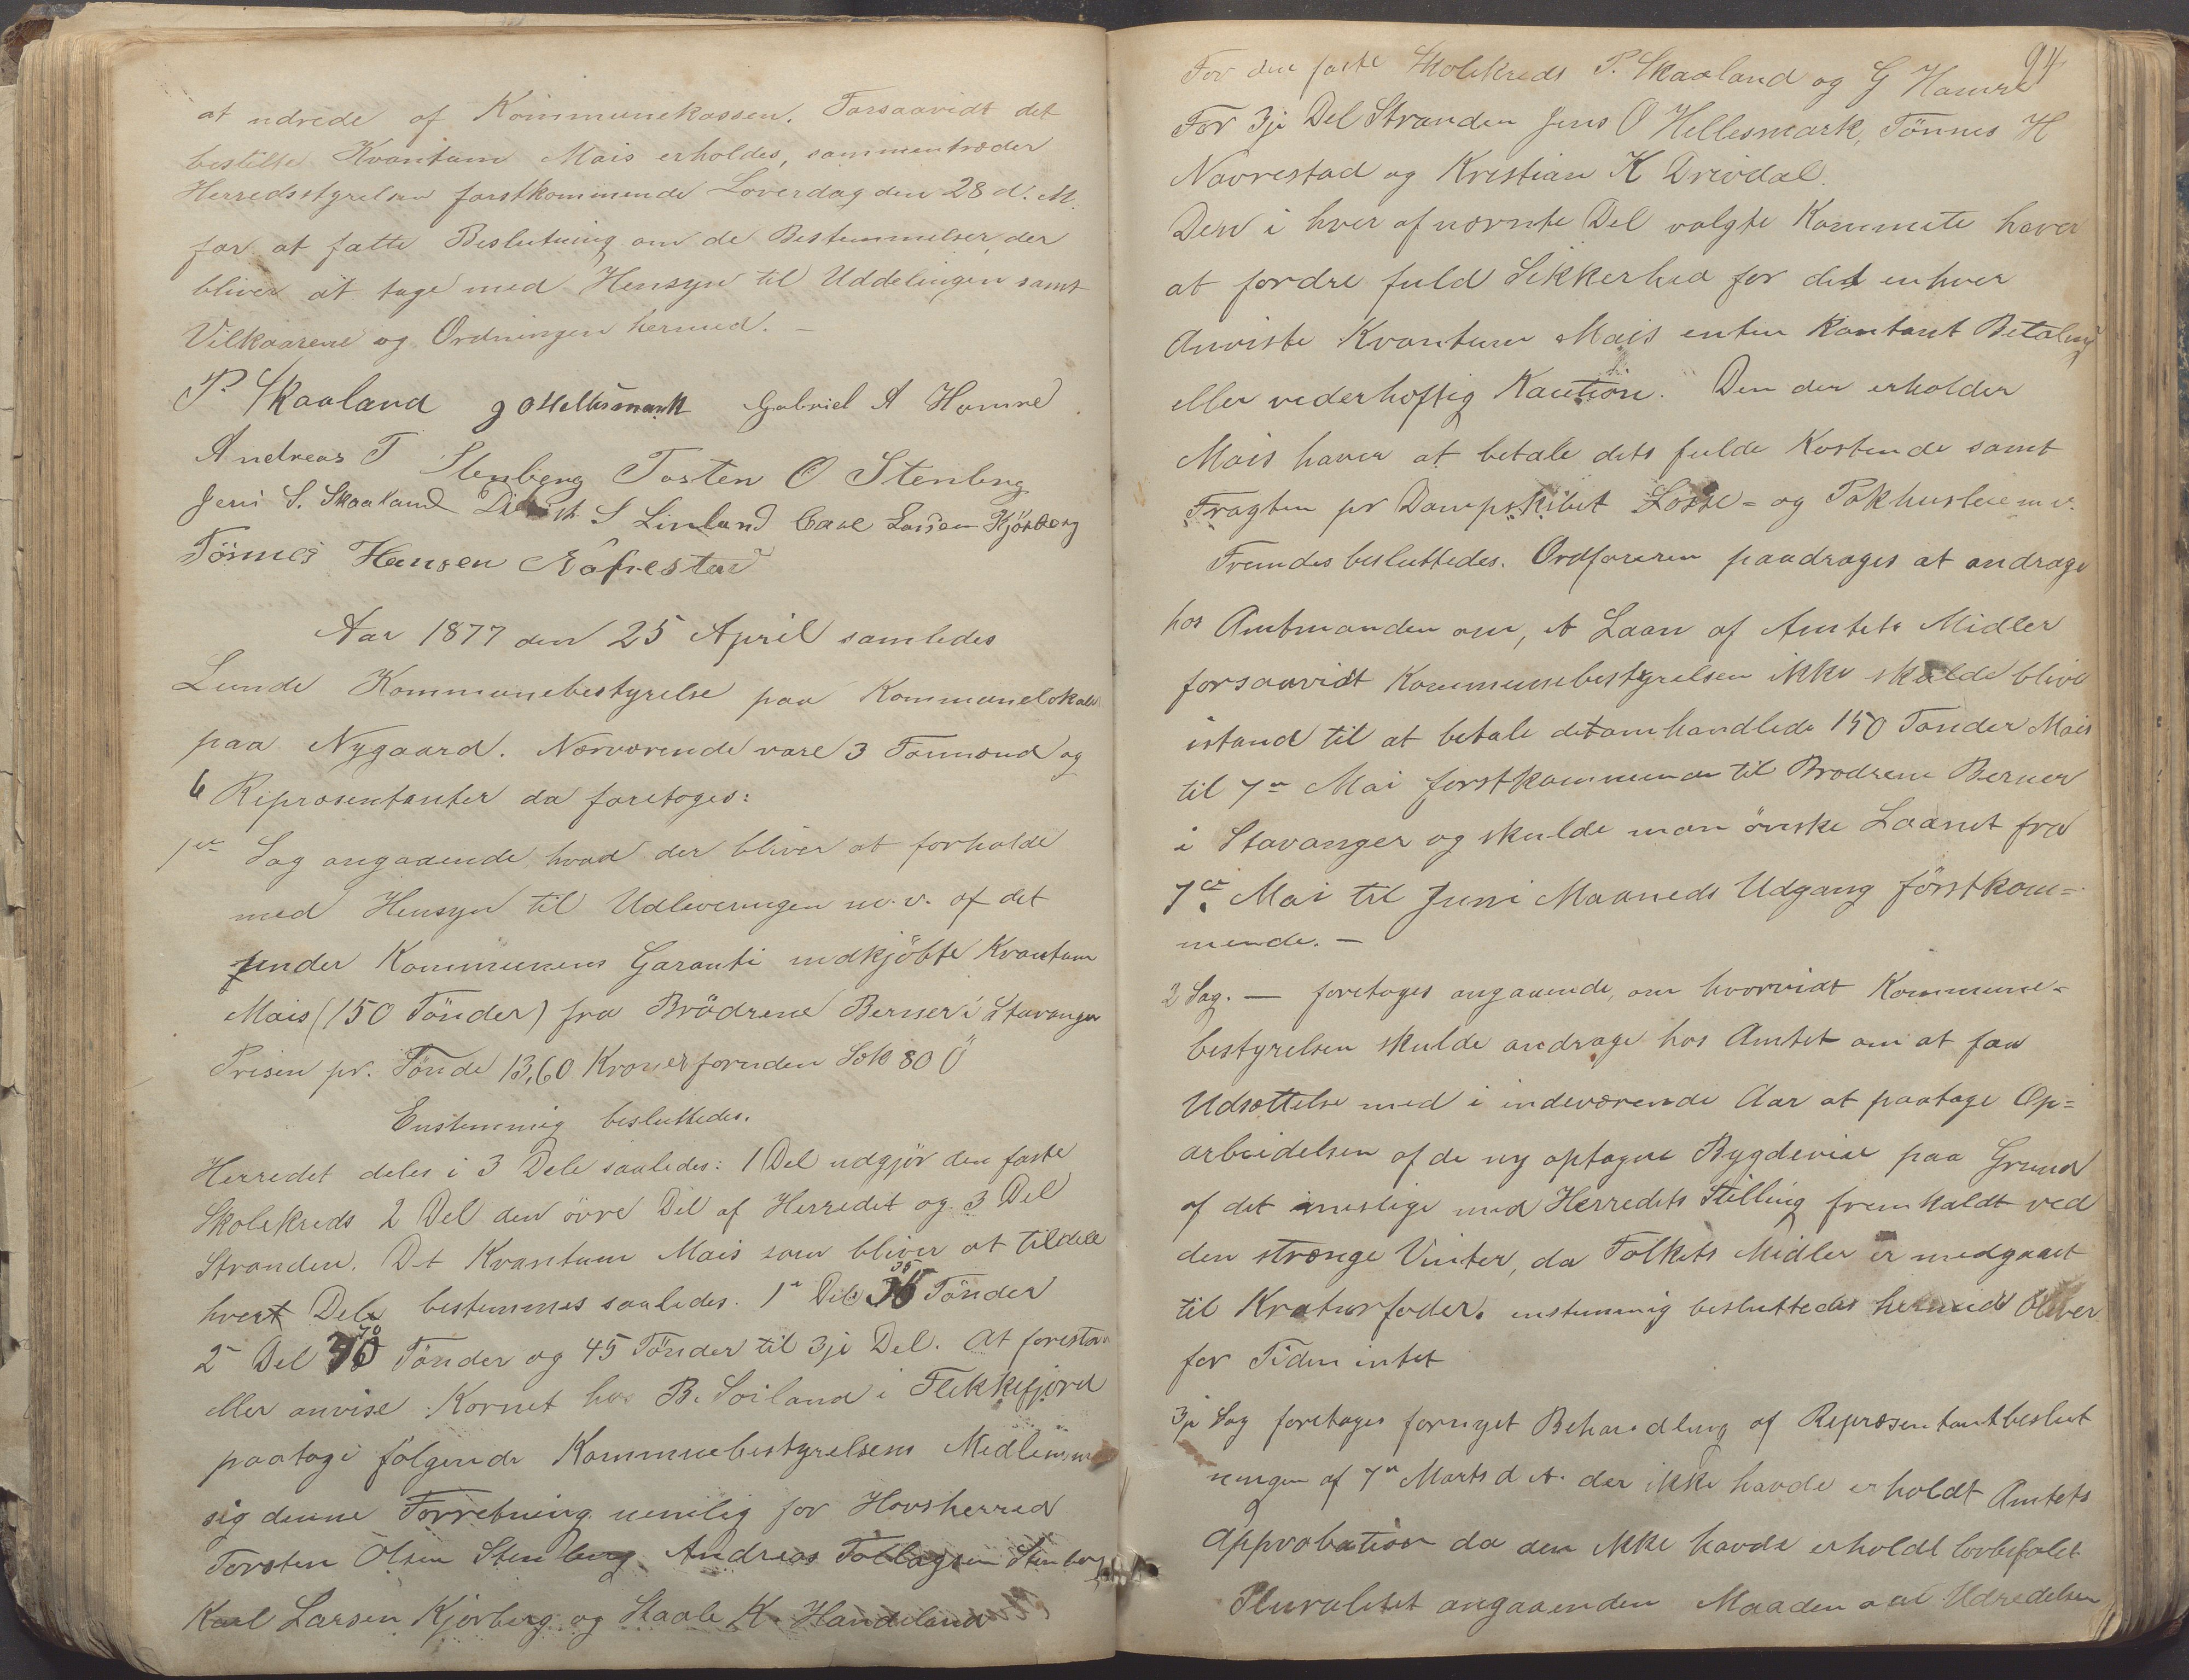 at udrede af Kommunekassen. Forsaavidt det
bestilte Kvantum Mais erholdes, sammentræder
Herredsstyrelsen førstkommende Løverdag den 28 d. M.
for at fatte Beslutning om de Bestemmelser der
bliver at tage med Hensyn til Uddelingen samt
Vilkaarene og Ordningen hermed. —
P. Skaaland J O Hellesmark Gabriel A Hamre
Andreas T Stenberg Tosten O Stenberg
Jens S. Skaaland Didrik S Linland Carl Larsen Kjörberg
Tönnes Hansen Nåfrestad
Aar 1877 den 25 April samledes
Lunde Kommunebestyrelse paa Kommunelokalet
paa Nygaard. Nærværende vare 3 Formænd og
6 Repræsentanter da foretoges:
1ste Sag angaaende hvad der bliver at forholde
med Hensyn til Udleveringen m.v. af det
under Kommunens Garanti indkjöbte Kvantum
Mais (150 Tönder) fra Brödrene Berner i Stavanger
Prisen pr. Tönde 13,60 Kroner foruden Sæk 80 Ö
Enstemmig besluttedes.
Herredet deles i 3 Dele saaledes: 1 Del udgjör den faste
Skolekreds 2 Del den övre Del af Herredet og 3 Del
Stranden. Det Kvantum Mais som bliver at tildele
hvert Dele bestemmes saaledes. 1ste Del 35 Tönder
2den Del 70 Tönder og 45 Tönder til 3je Del. At forestaa
eller anvise Kornet hos B. Soiland i Flekkefjord
paatage fölgende Kommunebestyrelsens Medlemmer
sig denne Forretning nemlig for Hovsherred
Torsten Olsen Stenberg Andreas Tollagsen Stenberg
Karl Larsen Kjørberg og Staale K. Handeland
94
For den faste Skolekreds P. Skaaland og G Hamre
For 3je Del Stranden Jens O Hellesmark, Tönnes H
Navrestad og Kristian K Drivdal.
Den i hver af nævnte Del valgte Kommite haver
at fordre fuld Sikkerhed for det enhver
Anviste Kvantum Mais enten Kontant Betaling
eller vederhæftig Kaution. Den der erholder
Mais haver at betale dets fulde Kostende samt
Fragten pr Dampskibet Losse- og Pakhusleie m.v.
Fremdes besluttedes. Ordføreren paadrages at andrage
hos Amtmanden om, et Laan af Amtets Midler
forsaavidt Kommunebestyrelsen ikke skulde blive
istand til at betale detomhandlede 150 Tønder Mais
til 7de Mai førstkommende til Brødrene Berner
i Stavanger og skulde man önske Laanet fra
7de Mai til Juni Maaneds Udgang förstkom=
mende. —
2 Sag. — foretoges angaaende, om hvorvidt Kommune-
bestyrelsen skulde andrage hos Amtet om at faa
Udsættelse med i indeværende Aar at paatage Op=
arbeidelsen af de ny optagne Bygdeveie paa Grund
af det meslige med Herredets Stilling fremkaldt ved
den strænge Vinter, da Folkets Midler er medgaaet
til Kraturfoder. enstemmig besluttedes hermed bliver
for Tiden intet
3je Sag foretages fornyet Behandling af Repræsentantbeslut
ningen af 7de Marts d A. der ikke havde erholdt Amtets
Approbation da den ikke havde erholdt lovbefalet
Pluralitet angaaenden Maaden Udredelsen